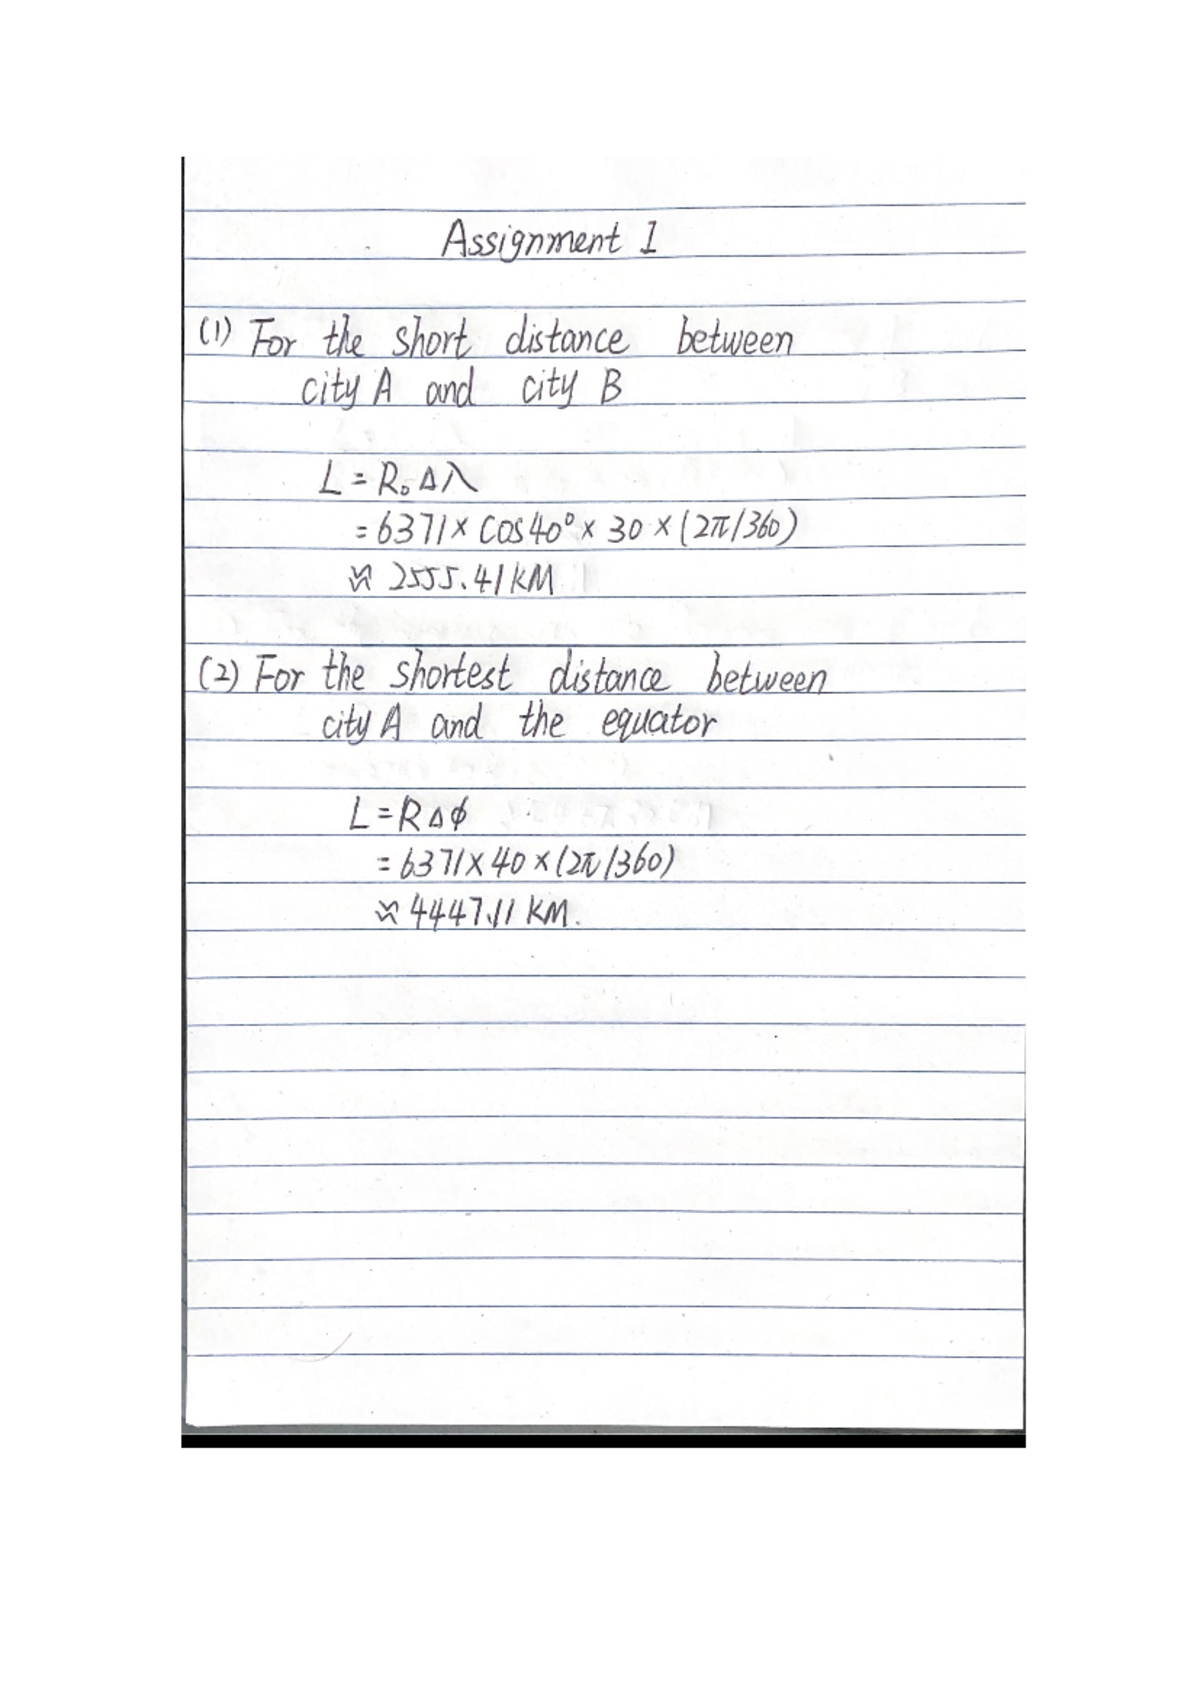 Assignment 1
(1) For the short distance between
city A and city B
L = R₀Δλ
= 6371 × cos40° × 30 × (2π/360)
≈ 2555.41 KM
(2) For the shortest distance between
city A and the equator
L = RΔϕ
= 6371 × 40 × (2π/360)
≈ 4447.11 KM.